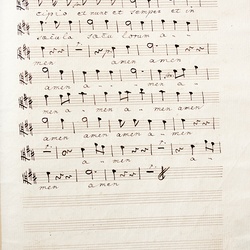 cipio et nunc et semper et in
sæcula sæculorum a - -
men amen amen
amen a - - men
men a - men a - men
amen amen amen amen
a - men a -
men amen